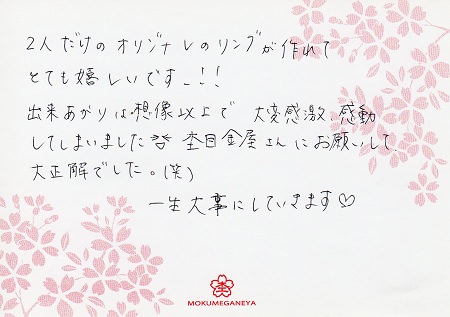 2人だけのオリジナルのリングが作れて
とても嬉しいです_!!
出来あがりは想像以上で 大変感激、感動
してしまいました 杢目金屋さんにお願いして
大正解でした。(笑)
一生大事にしていきます♡
MOKUMEGANEYA